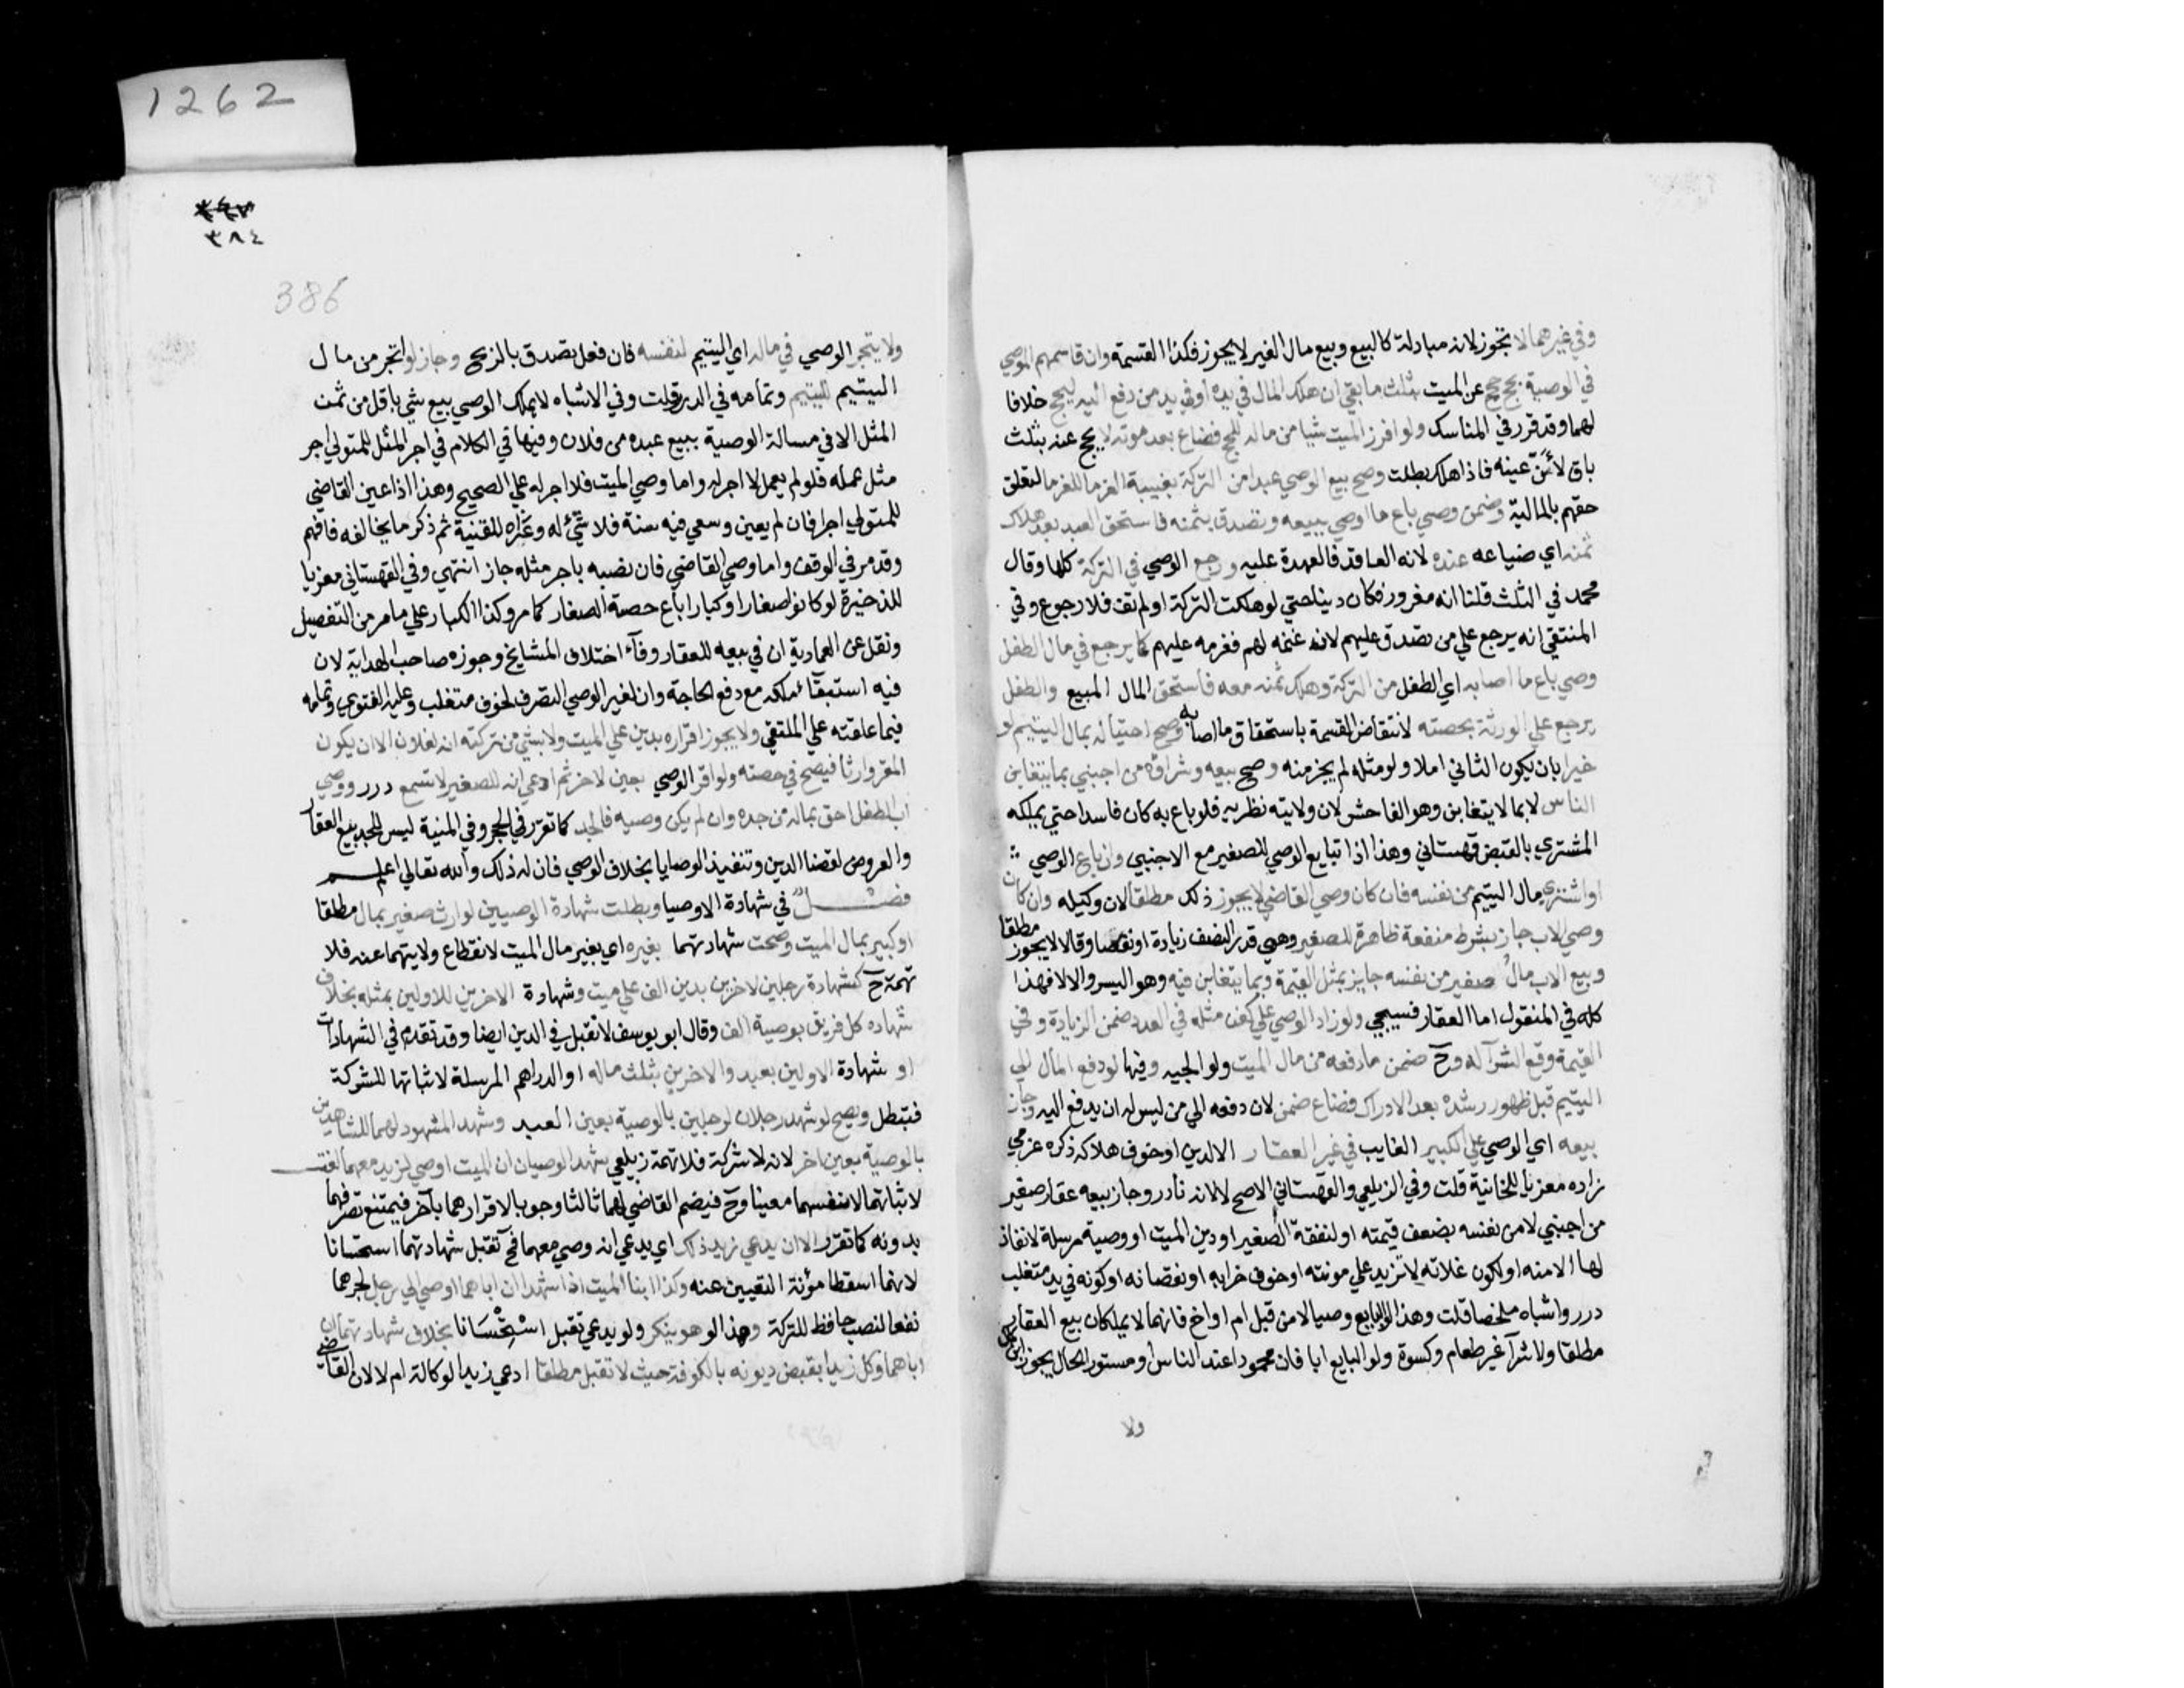 1262
٣٨٤
386
وفي غيرهما لا تجوز لانه مبادلة كالبيع وبيع مال الغير لا يجوز فكذا القسمة وان قاسمهم الوصي
في الوصية بحج حج عن الميت بثلث ما بقي ان هلك المال في يده او في يد من دفع اليه ليحج خلافا
لهما وقد قرر في المناسك ولو افرز الميت شيا من ماله للحج فضاع بعد موته لا يحج عنه بثلث
باق لانّ عينه فاذا هلك بطلت وصح بيع الوصي عبدا من التركة بغيبة الغرما للغرما لتعلق
حقهم بالمالية وضمن وصي باع ما اوصي ببيعه وتصدق بثمنه فاستحق العبد بعد هلاك
ثمنه اي ضياعه عنده لانه العاقد فالعهدة عليه ورجع الوصي في التركة كلها وقال
محمد في الثلث قلنا انه مغرور فكان دينا حتي لو هلكت التركة او لم تف فلا رجوع وفي
المنتقي انه يرجع علي من تصدق عليهم لانه غنمه لهم فغرمه عليهم كما يرجع في مال الطفل
وصي باع ما اصابه اي الطفل من التركة وهلك ثمنه معه فاستحق المال المبيع والطفل
يرجع علي الورثة بحصته لانتقاض القسمة باستحقاق ما اصابه وصح احتياله بمال اليتيم لو
خيرا بان يكون الثاني املا ولو مثله لم يجز منه وصح بيعه وشراؤه من اجنبي بما يتغابن
الناس لا بما لا يتغابن وهو الفاحش لان ولايته نظرية فلو باع به كان فاسدا حتي يملكه
المشتري بالقبض قهستاني وهذا اذا تبايع الوصي للصغير مع الاجنبي وان باع الوصي
او اشتري مال اليتيم من نفسه فان كان وصي القاضي لا يجوز ذلك مطلقا لان وكيله وان كان
وصي الاب جاز بشرط منفعة ظاهرة للصغير وهي قدر النصف زيادة او نقصا وقالا لا يجوز مطلقا
وبيع الاب مال صغير من نفسه جايز بمثل القيمة وبما يتغابن فيه وهو اليسر والا لا فهذا
كله في المنقول اما العقار فسيجي ولو زاد الوصي علي كفن مثله في العدد ضمن الزيادة وفي
القيمة وقع الشرآ له وح ضمن ما دفعه من مال الميت ولو الجيه وفيها لو دفع المال الي
اليتيم قبل ظهور رشده بعد الادراك فضاع ضمن لان دفعه الي من ليس له ان يدفع اليه وجاز
بيعه اي الوصي علي الكبير الغايب في غير العقار الا لدين او خوف هلاكه ذكره عزمي
زاده معزيا للخانية قلت وفي الزيلعي والقهستاني الاصح لا لانه نادر وجاز بيعه عقار صغير
من اجنبي لا من نفسه بضعف قيمته او لنفقة الصغير او دين الميت او وصية مرسلة لا نفاذ
لها الا منه او لكون غلاته لا تزيد علي مونته او خوف خرابه او نقصانه او كونه في يد متغلب
درر واشباه ملخصا قلت وهذا لو البايع وصيا لا من قبل ام او اخ فانهما لا يملكان بيع العقار
مطلقا ولا شرآ غير طعام وكسوة ولو البايع ابا فان محمودا عند الناس او مستور الحال يجوز ابن كمال
ولا
ولا يتجر الوصي في ماله اي اليتيم لنفسه فان فعل تصدق بالربح وجاز لو اتجر من مال
اليتيم لليتيم وتمامه في الدرر قلت وفي الاشباه لا يملك الوصي بيع شي باقل من ثمن
المثل الا في مسالة الوصية ببيع عبده من فلان وفيها في الكلام في اجر المثل للمتولي اجر
مثل عمله فلو لم يعمل لا اجر له واما وصي الميت فلا اجر له علي الصحيح وهذا اذا عين القاضي
للمتولي اجرا فان لم يعين وسعي فيه سنة فلا شئ له وعزاه للقنية ثم ذكر ما يخالفه فافهم
وقد مر في الوقف واما وصي القاضي فان نصبه باجر مثله جاز انتهي وفي القهستاني معزيا
للذخيرة لو كانوا صغارا وكبارا باع حصة الصغار كما مر وكذا الكبار علي ما مر من التفصيل
ونقل عن العمادية ان في بيعه للعقار وفآء اختلاف المشايخ وجوزه صاحب الهداية لان
فيه استبقآء ملكه مع دفع الحاجة وان لغير الوصي التصرف لخوف متغلب وعليه الفتوي وتمامه
فيما علقته علي الملتقي ولا يجوز اقراره بدين علي الميت ولا بشي من تركته انه لفلان الا ان يكون
المقر وارثا فيصح في حصته ولو اقر الوصي بعين لاخر ثم ادعي انه للصغير لا تسمع درر ووصي
اب الطفل احق بماله من جده وان لم يكن وصيه فالجد كما تقرر في الحجر وفي المنية ليس للجد بيع العقار
والعروض لقضا الدين وتنفيذ الوصايا بخلاف الوصي فان له ذلك والله تعالي اعلم
فصل في شهادة الاوصيا وبطلت شهادة الوصيين لوارث صغير بمال مطلقا
او كبير بمال الميت وصحت شهادتهما بغيره اي بغير مال الميت لانقطاع ولايتهما عنه فلا
تهمة ح كشهادة رجلين لاخرين بدين الف علي ميت وشهادة الاخرين للاولين بمثله بخلاف
شهاده كل فريق بوصية الف وقال ابو يوسف لا تقبل في الدين ايضا وقد تقدم في الشهادات
او شهادة الاولين بعبد والاخرين بثلث ماله او الدراهم المرسلة لاثباتها للشركة
فتبطل ويصح لو شهد رجلان لرجلين بالوصية بعين العبد وشهد المشهود لهما للشاهدين
بالوصية بعين اخر لانه لا شركة فلا تهمة زيلعي شهد الوصيان ان الميت اوصي لزيد معهما لغت
لاثباتهما لانفسهما معينا وح فيضم القاضي لهما ثالثا وجوبا لاقرارهما بآخر فيمتنع تصرفهما
بدونه كما تقرر الا ان يدعي زيد ذلك اي يدعي انه وصي معهما فح تقبل شهادتهما استحسانا
لانهما اسقطا مؤنة التعيين عنه وكذا ابنا الميت اذا شهدا ان اباهما اوصي الي رجل لجرهما
نفعا لنصب حافظ للتركة وهذا لو هو ينكر ولو يدعي تقبل استحسانا بخلاف شهادتهما ان
اباهما وكل زيدا بقبض ديونه بالكوفة حيث لا تقبل مطلقا ادعي زيد الوكالة ام لا لان القاضي